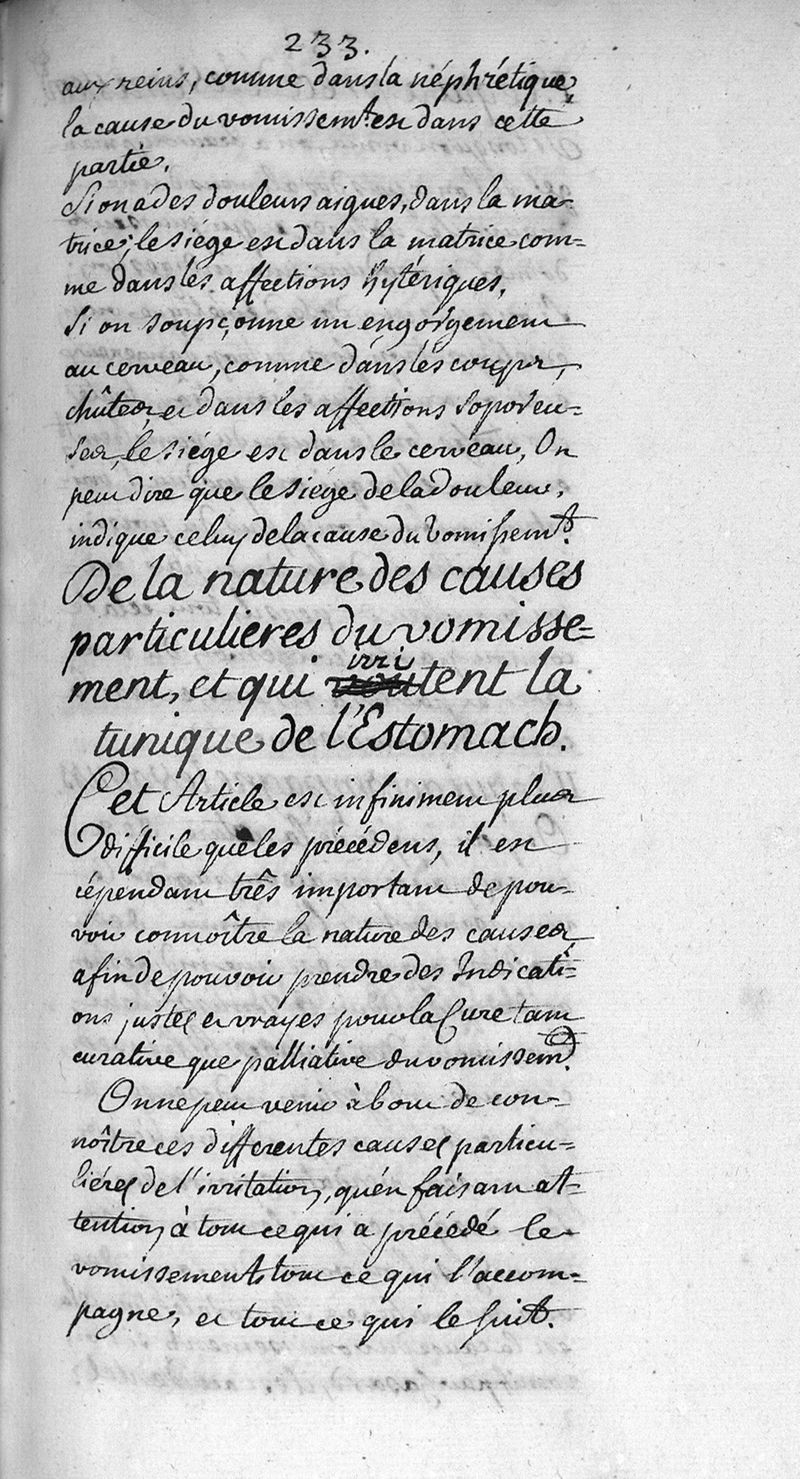 233.
aux reins, comme dans la néphrétique,
la cause du vomissemt. est dans cette
partie.
Si on a des douleurs aigues, dans la ma-
trice; le siége est dans la matrice com=
me dans les affections hytériques,
Si on soupçonne un engorgement
au cerveau, comme dans les coups,
chûtes, et dans les affections soporeu=
ses, le siége est dans le cerveau, On
peut dire que le siége de la douleur,
indique celuy de la cause du vomissemt.
De la nature des causes
particulieres du vomisse=
ment, et qui irritent la
tunique de l'Estomach.
Cet Article est infiniment plus
difficile que les précédens, il est
cépendant três important de pou-
voir connoître la nature des causes,
afin de pouvoir prendre des Indicati-
ons justes et vrayes pour la Cure tant
curative que palliative du vomissemt.
On ne peut venir à bout de con-
noître ces differentes causes particu=
liéres de l'irritation, qu'en faisant at-
tention à tout ce qui a précédé le
vomissement, tout ce qui l'accom-
pagne, et tout ce qui le suit.